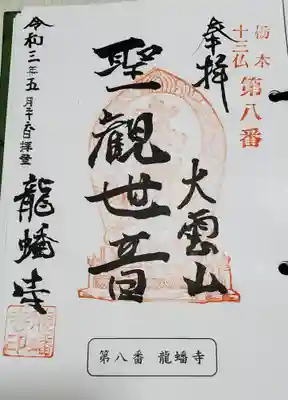 栃木
十三仏 第八番
奉拝
大雲山
聖観世音
令和三年五月
拝登
龍蟠寺
第八番 龍蟠寺